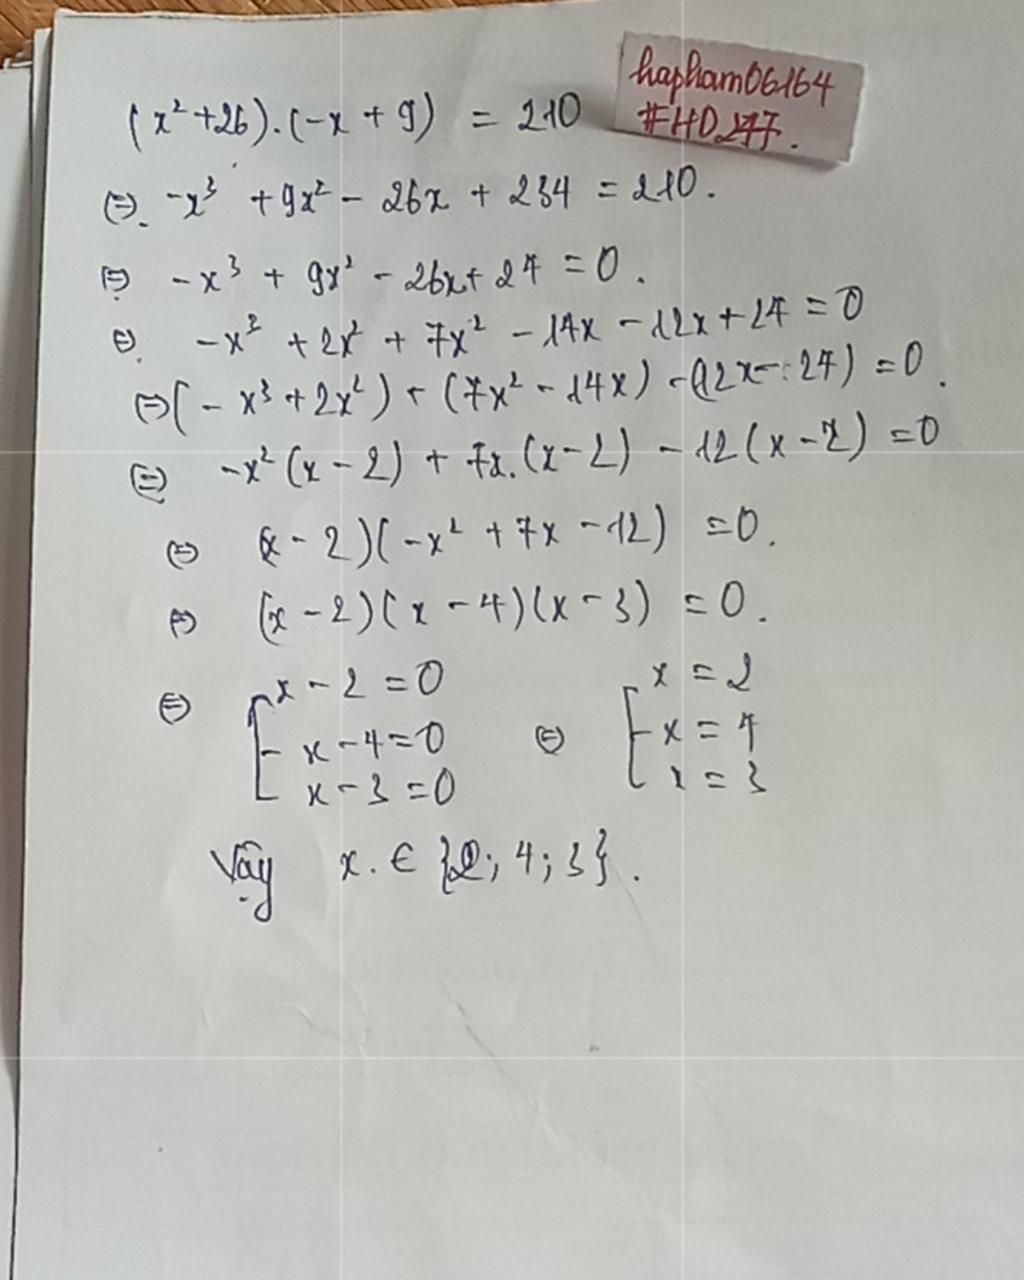 hapham06164
#HD277.
(x²+26).(-x + 9) = 210
⇔. -x³ + 9x² - 26x + 234 = 210.
⇔ -x³ + 9x² - 26x + 24 = 0.
⇔. -x³ + 2x² + 7x² - 14x - 12x + 24 = 0
⇔ (- x³ + 2x²) + (7x² - 14x) - (12x - 24) = 0.
⇔ -x² (x - 2) + 7x.(x - 2) - 12 (x - 2) = 0
⇔ (x - 2)(-x² + 7x - 12) = 0.
⇔ (x - 2)(x - 4)(x - 3) = 0.
⇔ [ x - 2 = 0 ⇔ [ x = 2
x - 4 = 0 x = 4
x - 3 = 0 x = 3
Vậy x. ∈ {2; 4; 3}.